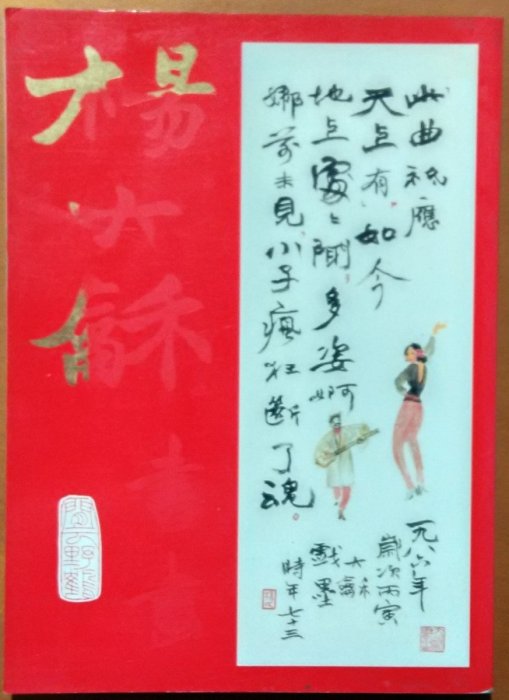 楊大龢
此曲祇應
天上有如今
地上處々聞多姿婀
娜前未見小子瘋狂斷了魂
一九八六年
歲次丙寅
大龢
戲墨
時年七十三